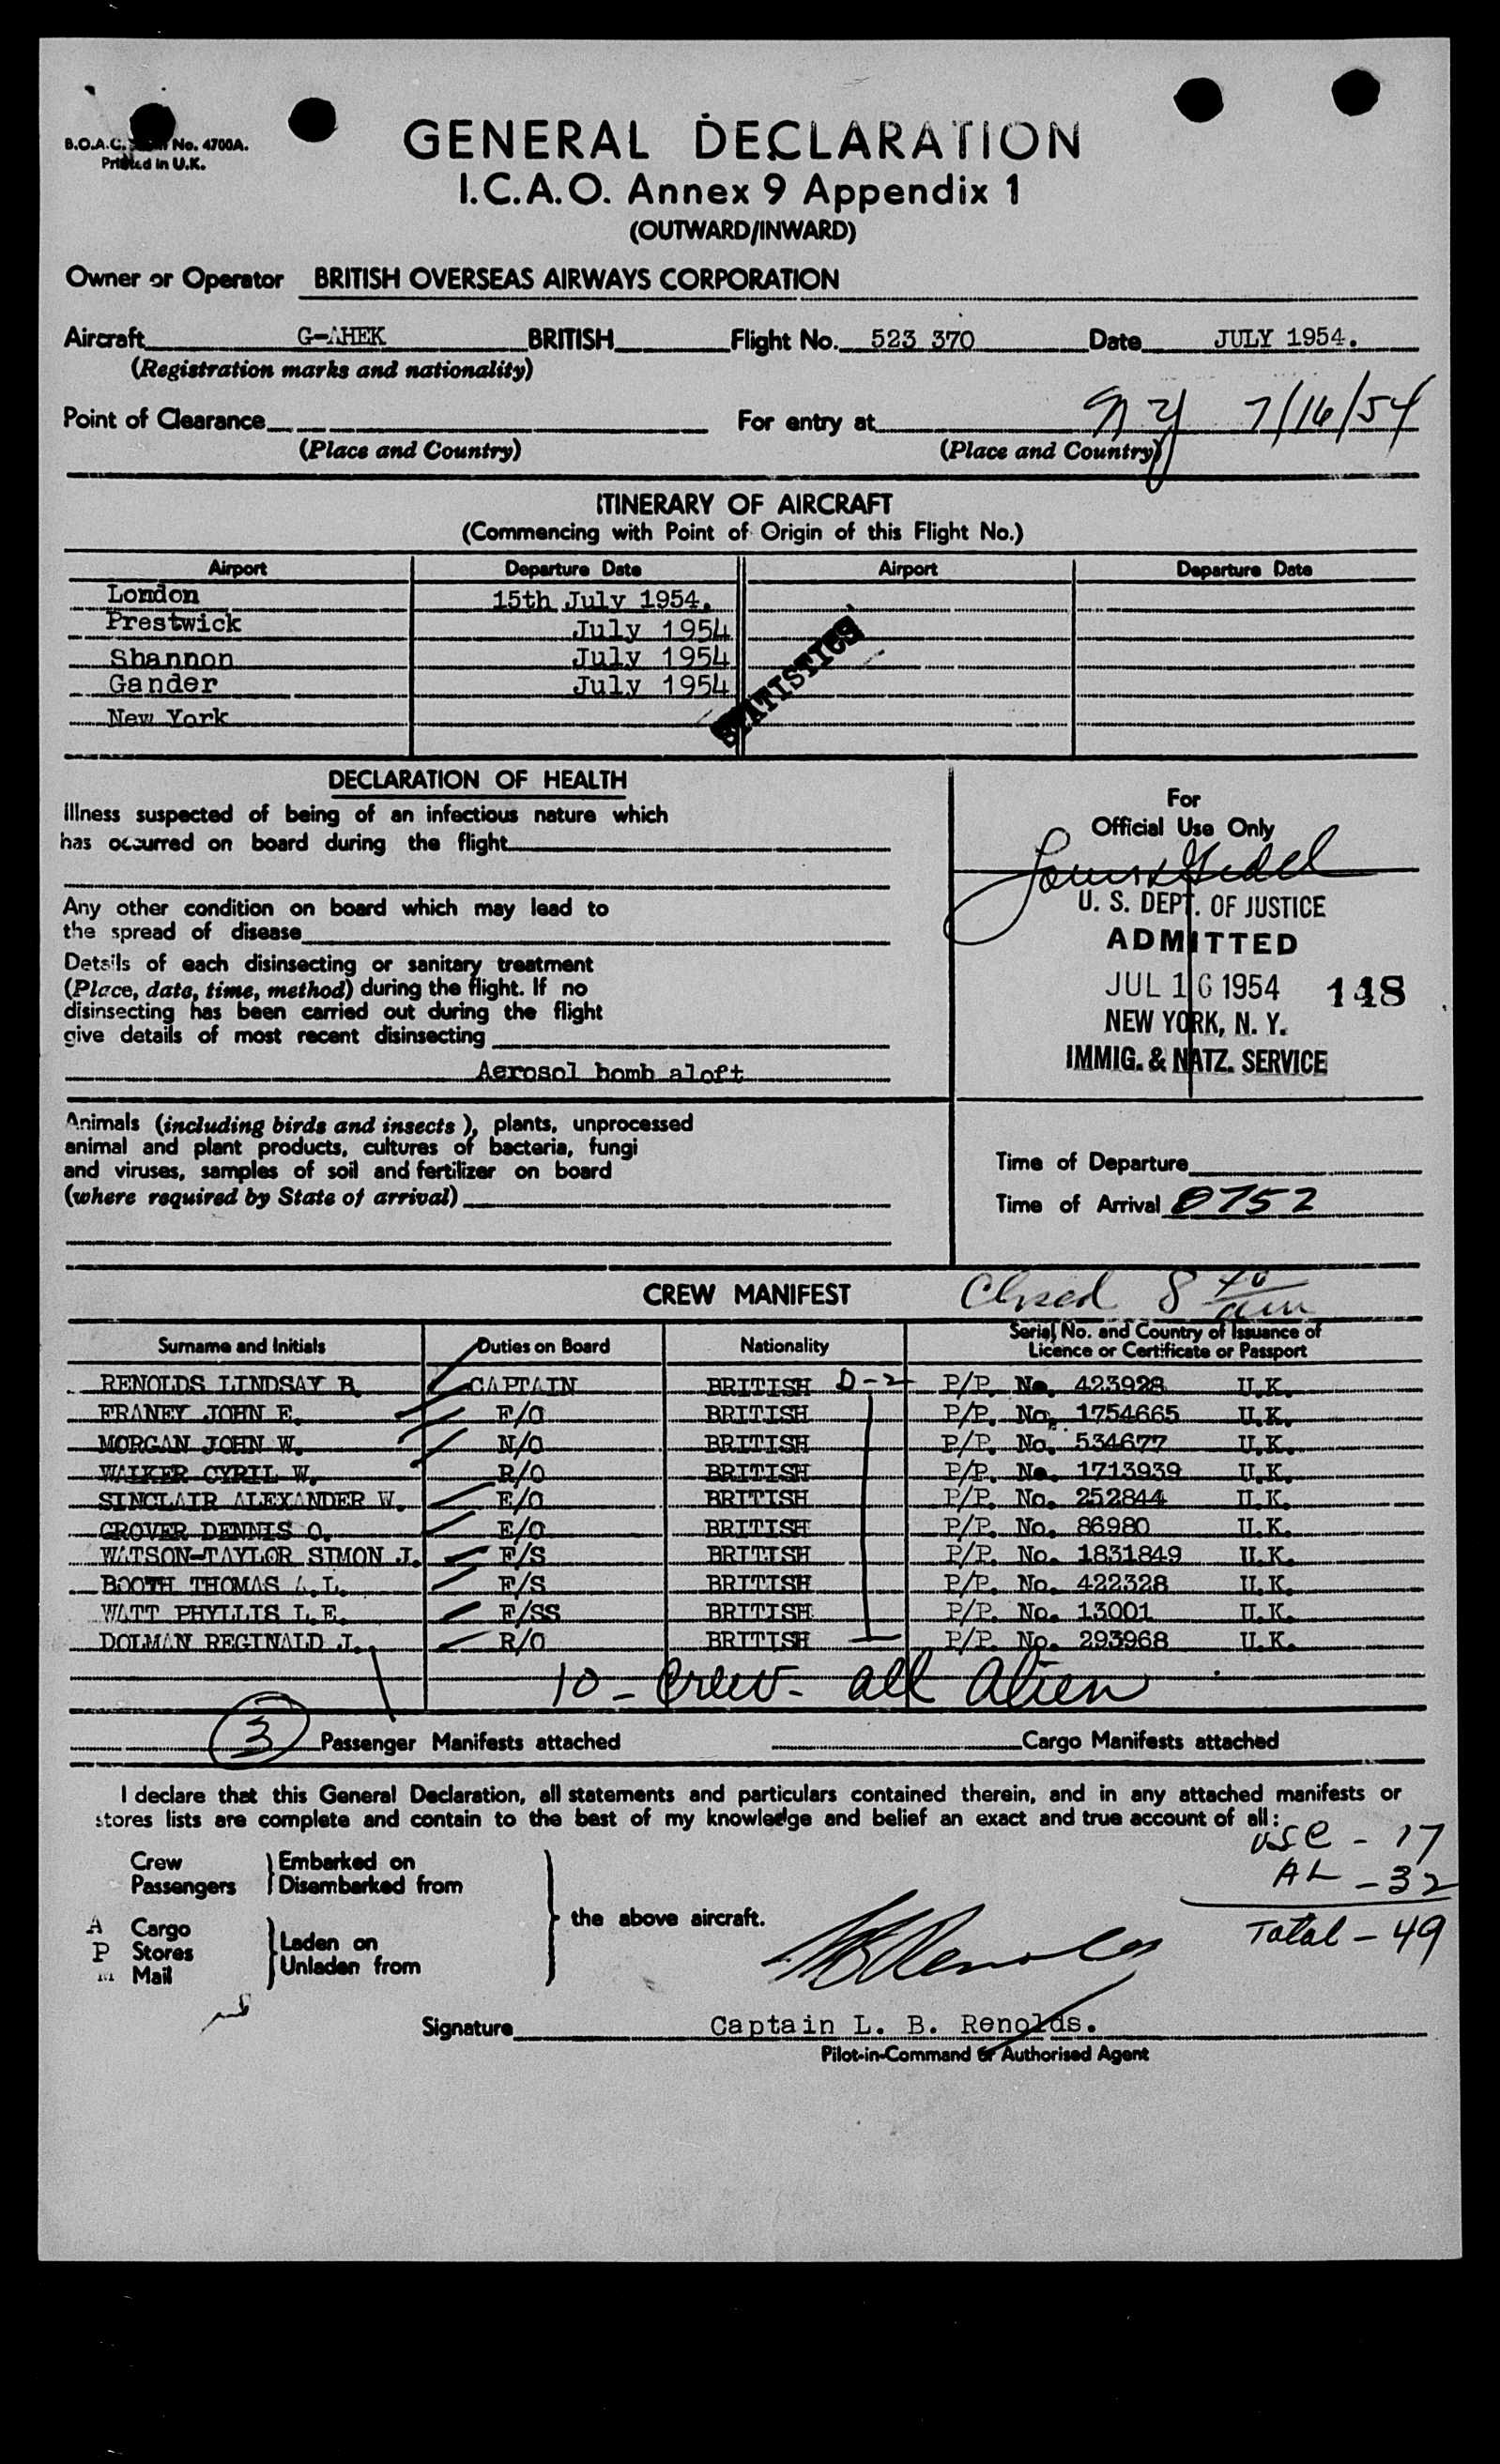 B.O.A.C. No. 4700A.
Printed in U.K.
GENERAL DECLARATION
I.C.A.O. Annex 9 Appendix 1
(OUTWARD/INWARD)
Owner or Operator BRITISH OVERSEAS AIRWAYS CORPORATION
Aircraft G-AHEK BRITISH Flight No. 523 370 Date JULY 1954.
(Registration marks and nationality)
Point of Clearance For entry at NY 7/16/54
(Place and Country) (Place and Country)
ITINERARY OF AIRCRAFT
(Commencing with Point of Origin of this Flight No.)
Airport Departure Date Airport Departure Date
London 15th July 1954.
Prestwick July 1954
Shannon July 1954
Gander July 1954
New York
STATISTICS
DECLARATION OF HEALTH
Illness suspected of being of an infectious nature which
has occurred on board during the flight
Any other condition on board which may lead to
the spread of disease
Details of each disinsecting or sanitary treatment
(Place, date, time, method) during the flight. If no
disinsecting has been carried out during the flight
give details of most recent disinsecting
Aerosol bomb aloft
Animals (including birds and insects), plants, unprocessed
animal and plant products, cultures of bacteria, fungi
and viruses, samples of soil and fertilizer on board
(where required by State of arrival)
For
Official Use Only
U. S. DEPT. OF JUSTICE
ADMITTED
JUL 16 1954 148
NEW YORK, N. Y.
IMMIG. & NATZ. SERVICE
Time of Departure
Time of Arrival 0752
CREW MANIFEST Closed 8 40 am
Surname and Initials Duties on Board Nationality Serial No. and Country of Issuance of
Licence or Certificate or Passport
RENOLDS LINDSAY B. CAPTAIN BRITISH D-2 P/P. No. 423928 U.K.
FRANEY JOHN E. F/O BRITISH P/P. No. 1754665 U.K.
MORGAN JOHN W. N/O BRITISH P/P. No. 534677 U.K.
WALKER CYRIL W. R/O BRITISH P/P. No. 1713939 U.K.
SINCLAIR ALEXANDER W. E/O BRITISH P/P. No. 252844 U.K.
GROVER DENNIS O. E/O BRITISH P/P. No. 86980 U.K.
WATSON-TAYLOR SIMON J. F/S BRITISH P/P. No. 1831849 U.K.
BOOTH THOMAS A.L. F/S BRITISH P/P. No. 422328 U.K.
WATT PHYLLIS L.E. F/SS BRITISH P/P. No. 13001 U.K.
DOLMAN REGINALD J. R/O BRITISH P/P. No. 293968 U.K.
10 - Crew - all Alien
3 Passenger Manifests attached Cargo Manifests attached
I declare that this General Declaration, all statements and particulars contained therein, and in any attached manifests or
stores lists are complete and contain to the best of my knowledge and belief an exact and true account of all:
USC - 17
AL - 32
Total - 49
Crew
Passengers
Embarked on
Disembarked from
A Cargo
P Stores
M Mail
Laden on
Unladen from
the above aircraft.
LB Renolds
Signature Captain L. B. Renolds.
Pilot-in-Command or Authorised Agent